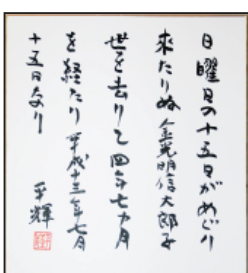 日曜日の十五日がめぐり
来たりぬ金光明信大郎君
世を去りて四年七カ月
を経たり平成十三年七月
十五日なり
平輝